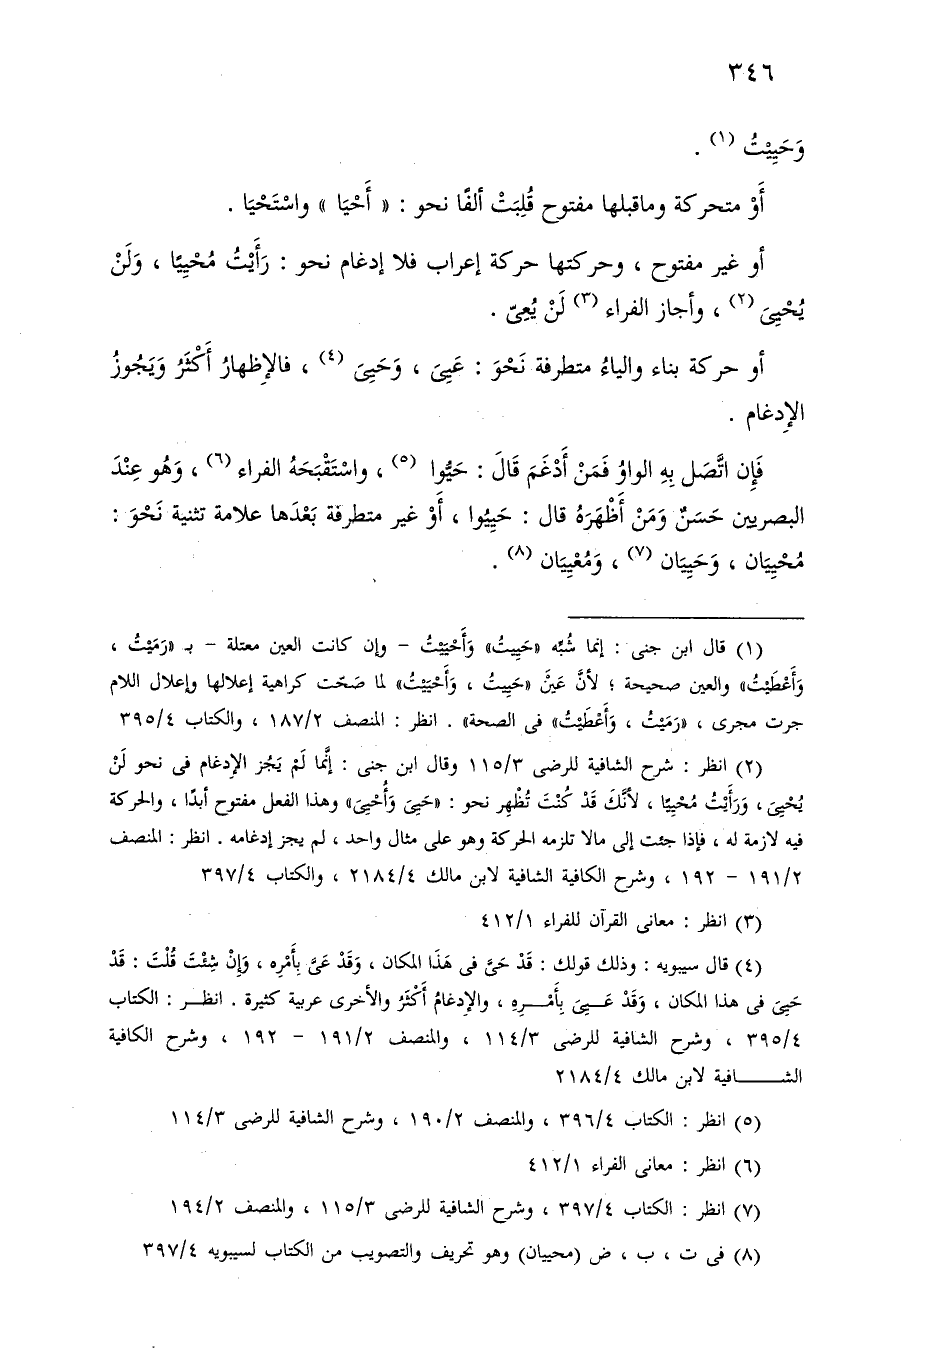 ٣٤٦
وَحَيِيْتُ (١) .
أَوْ متحركة وماقبلها مفتوح قُلِبَتْ ألفًا نحو : « أَحْيَا » واسْتَحْيَا .
أو غير مفتوح ، وحركتها حركة إعراب فلا إدغام نحو : رَأَيْتُ مُحْيِيًا ، وَلَنْ
يُحْيِيَ (٢) ، وأجاز الفراء (٣) لَنْ يُعِىّ .
أو حركة بناء والياءُ متطرفة نَحْوَ : عَيِىَ ، وَحَيِىَ (٤) ، فالإظهارُ أَكْثَرُ وَيَجُوزُ
الإدغام .
فَإِن اتَّصَل بِهِ الواوُ فَمَنْ أَدْغَمَ قَالَ : حَيُّوا (٥) ، واسْتَقْبَحَهُ الفراء (٦) ، وَهُو عِنْدَ
البصريين حَسَنٌ وَمَنْ أَظْهَرَهُ قال : حَيِيُوا ، أَوْ غير متطرفة بَعْدَها علامة تثنية نَحْوَ :
مُحْيِيَان ، وَحَيِيَان (٧) ، وَمُعْيِيَان (٨) .
(١) قال ابن جنى : إنما شُبِّه «حَيِيتُ» وَأَحْيَيْتُ – وإن كانت العين معتلة – بـ «رَمَيْتُ ،
وَأَعْطَيْتُ» والعين صحيحة ؛ لأنَّ عَيْنَ «حَيِيتُ ، وَأَحْيَيْتُ» لما صَحّت كراهية إعلالها وإعلال اللام
جرت مجرى ، «رَمَيْتُ ، وَأَعْطَيْتُ» فى الصحة» . انظر : المنصف ١٨٧/٢ ، والكتاب ٣٩٥/٤
(٢) انظر : شرح الشافية للرضى ١١٥/٣ وقال ابن جنى : إنَّما لَمْ يَجُز الإدغام فى نحو لَنْ
يُحْيِىَ ، وَرَأَيْتُ مُحْيِيًا ، لأنَّكَ قَدْ كُنْتَ تُظْهِر نحو : «حَيِىَ وَأُحْيِىَ» وهذا الفعل مفتوح أبدًا ، والحركة
فيه لازمة له ، فإذا جئت إلى مالا تلزمه الحركة وهو على مثال واحد ، لم يجز إدغامه . انظر : المنصف
١٩١/٢ – ١٩٢ ، وشرح الكافية الشافية لابن مالك ٢١٨٤/٤ ، والكتاب ٣٩٧/٤
(٣) انظر : معانى القرآن للفراء ٤١٢/١
(٤) قال سيبويه : وذلك قولك : قَدْ حَىَّ فى هَذَا المكان ، وَقَدْ عَىَّ بِأَمْرِه ، وَإِنْ شِئْتَ قُلْتَ : قَدْ
حَيِىَ فى هذا المكان ، وَقَدْ عَــيِىَ بِأَمْــرِهِ ، والإدغامُ أَكْثَرُ والأخرى عربية كثيرة . انظــر : الكتاب
٣٩٥/٤ ، وشرح الشافية للرضى ١١٤/٣ ، والمنصف ١٩١/٢ – ١٩٢ ، وشرح الكافية
الشــــافية لابن مالك ٢١٨٤/٤
(٥) انظر : الكتاب ٣٩٦/٤ ، والمنصف ١٩٠/٢ ، وشرح الشافية للرضى ١١٤/٣
(٦) انظر : معانى الفراء ٤١٢/١
(٧) انظر : الكتاب ٣٩٧/٤ ، وشرح الشافية للرضى ١١٥/٣ ، والمنصف ١٩٤/٢
(٨) فى ت ، ب ، ض (محييان) وهو تحريف والتصويب من الكتاب لسيبويه ٣٩٧/٤